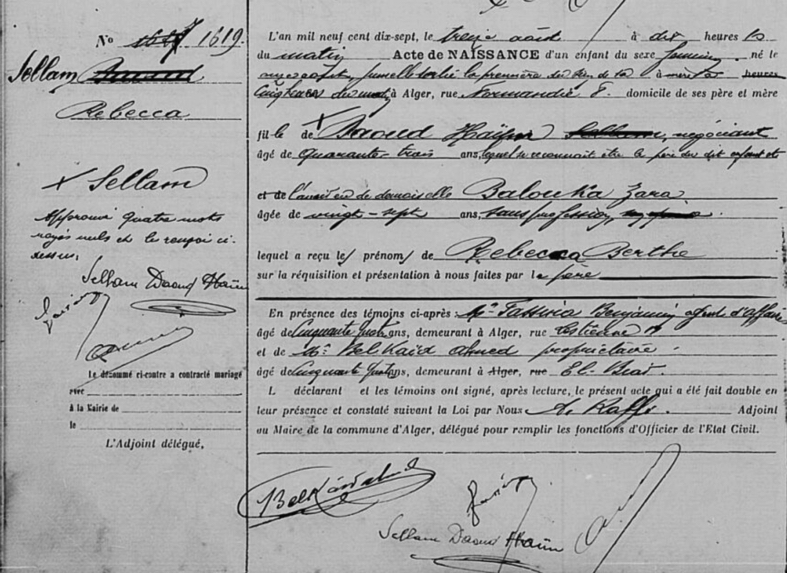 No 1619.
Sellam
Rebecca
X Sellam
Approuvé quatre mots
rayés nuls et le renvoi ci-
dessus,
Sellam Daoud Haïm
Le dénommé ci-contre a contracté mariage
avec
à la Mairie de
le
L'Adjoint délégué,
L'an mil neuf cent dix-sept, le treize août à dix heures
du matin Acte de NAISSANCE d'un enfant du sexe féminin, né le
jumelle la première des deux à heures
cinq heures du matin à Alger, rue Normandie 8. domicile de ses père et mère
X
fille de Daoud Haïm, négociant
âgé de quarante-trois ans, lequel a reconnu être le père du dit enfant et
et de demoiselle Balouka Zara
âgée de vingt-sept ans, sans profession,
lequel a reçu le prénom de Rebecca Berthe
sur la réquisition et présentation à nous faites par le père
En présence des témoins ci-après : Mr. Benjamin agent d'affaires
âgé de cinquante quatre ans, demeurant à Alger, rue
et de Mr. Belkaïd Ahmed propriétaire
âgé de cinquante ans, demeurant à Alger, rue El-Biar.
L déclarant et les témoins ont signé, après lecture, le présent acte qui a été fait double en
leur présence et constaté suivant la Loi par Nous A. Raffi. Adjoint
au Maire de la commune d'Alger, délégué pour remplir les fonctions d'Officier de l'Etat Civil.
Belkaïd
Sellam Daoud Haïm